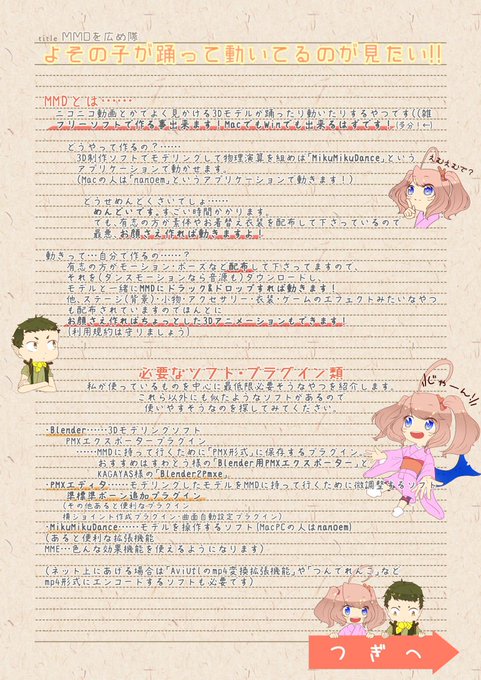 title MMDを広め隊
よその子が踊って動いてるのが見たい!!
MMDとは……
ニコニコ動画とかでよく見かける3Dモデルが踊ったり動いたりするやつです((雑
フリーソフトで作る事出来ます！MacでもWinでも出来るはずです！(多分!←)
えむえむで?
どうやって作るの？……
3D制作ソフトでモデリングして物理演算を組めば「MikuMikuDance」という
アプリケーションで動かせます。
(Macの人は「nanoem」というアプリケーションで動きます！)
どうせめんどくさいでしょ……
めんどいです。すごい時間かかります。
でも、有志の方が素体やお着替え衣装を配布して下さっているので
最悪 お顔さえ作れば動きますよ！
動きって…自分で作るの……？
有志の方がモーション・ポーズなど配布して下さってますので、
それを(ダンスモーションなら音源も)ダウンロードし、
モデルと一緒にMMDにドラック&ドロップすれば動きます！
他、ステージ(背景)・小物・アクセサリー・衣装・ゲームのエフェクトみたいなやつ
も配布されていますのでほんとに
お顔さえ作ればちょっとした3Dアニメーションもできます！
(利用規約は守りましょう)
必要なソフト・プラグイン類
じゃーん!!
私が使っているものを中心に最低限必要そうなやつを紹介します。
これら以外にも似たようなソフトがあるので
使いやすそうなのを探してみてください。
・Blender……3Dモデリングソフト
PMXエクスポータープラグイン
……MMDに持って行くために「PMX形式」に保存するプラグイン。
おすすめはすわとう様の「Blender用PMXエクスポーター」と
KAGAYAS様の「Blender2Pmxe」
・PMXエディタ……モデリングしたモデルをMMDに持って行くために微調整するソフト
準標準ボーン追加プラグイン
(その他あると便利なプラグイン
横ジョイント作成プラグイン・曲面自動設定プラグイン)
・MikuMikuDance……モデルを操作するソフト(MacPCの人はnanoem)
(あると便利な拡張機能
MME…色んな効果機能を使えるようになります)
(ネット上にあげる場合は「AviUtlのmp4変換拡張機能」や「つんでれんこ」など
mp4形式にエンコードするソフトも必要です)
つぎへ